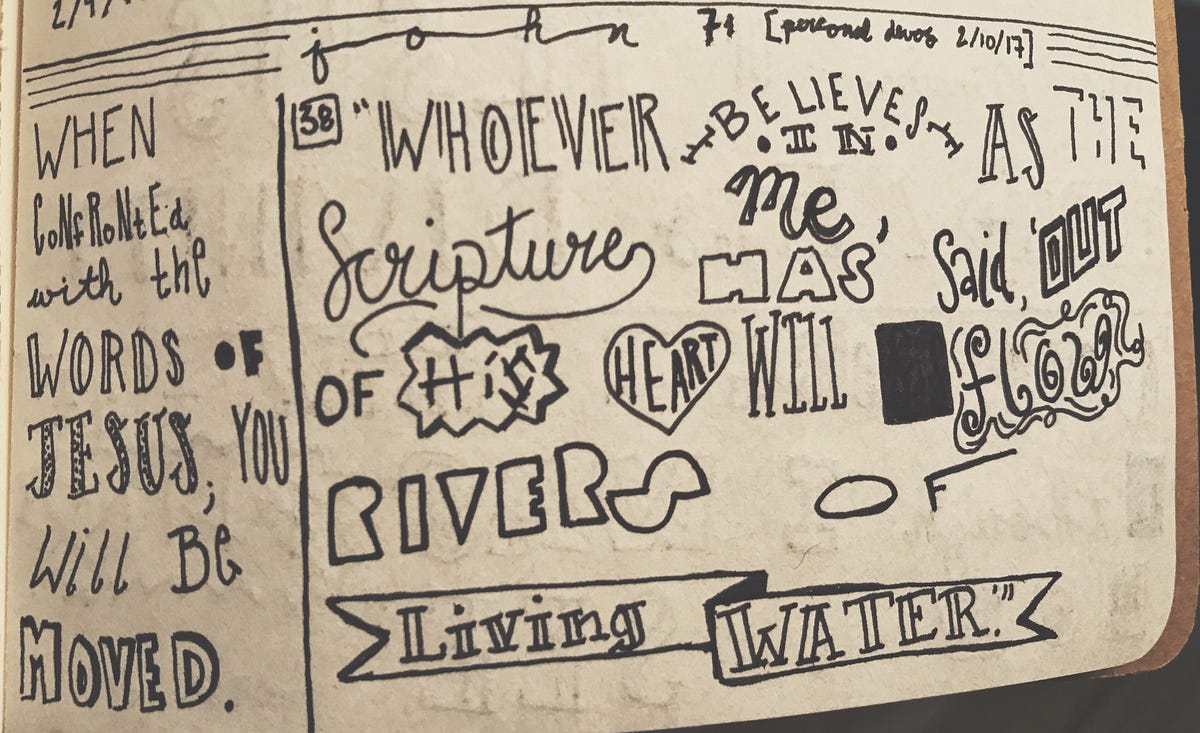 john [personal devos 2/10/17]
WHEN
CoNfRoNtEd
with the
WORDS OF
JESUS, YOU
Will Be
MOVED.
38 "WHOEVER BELIEVES IN Me, AS THE
Scripture HAS Said, 'OUT
OF HiS HEART WILL flow
RIVERS OF
Living WATER.'"